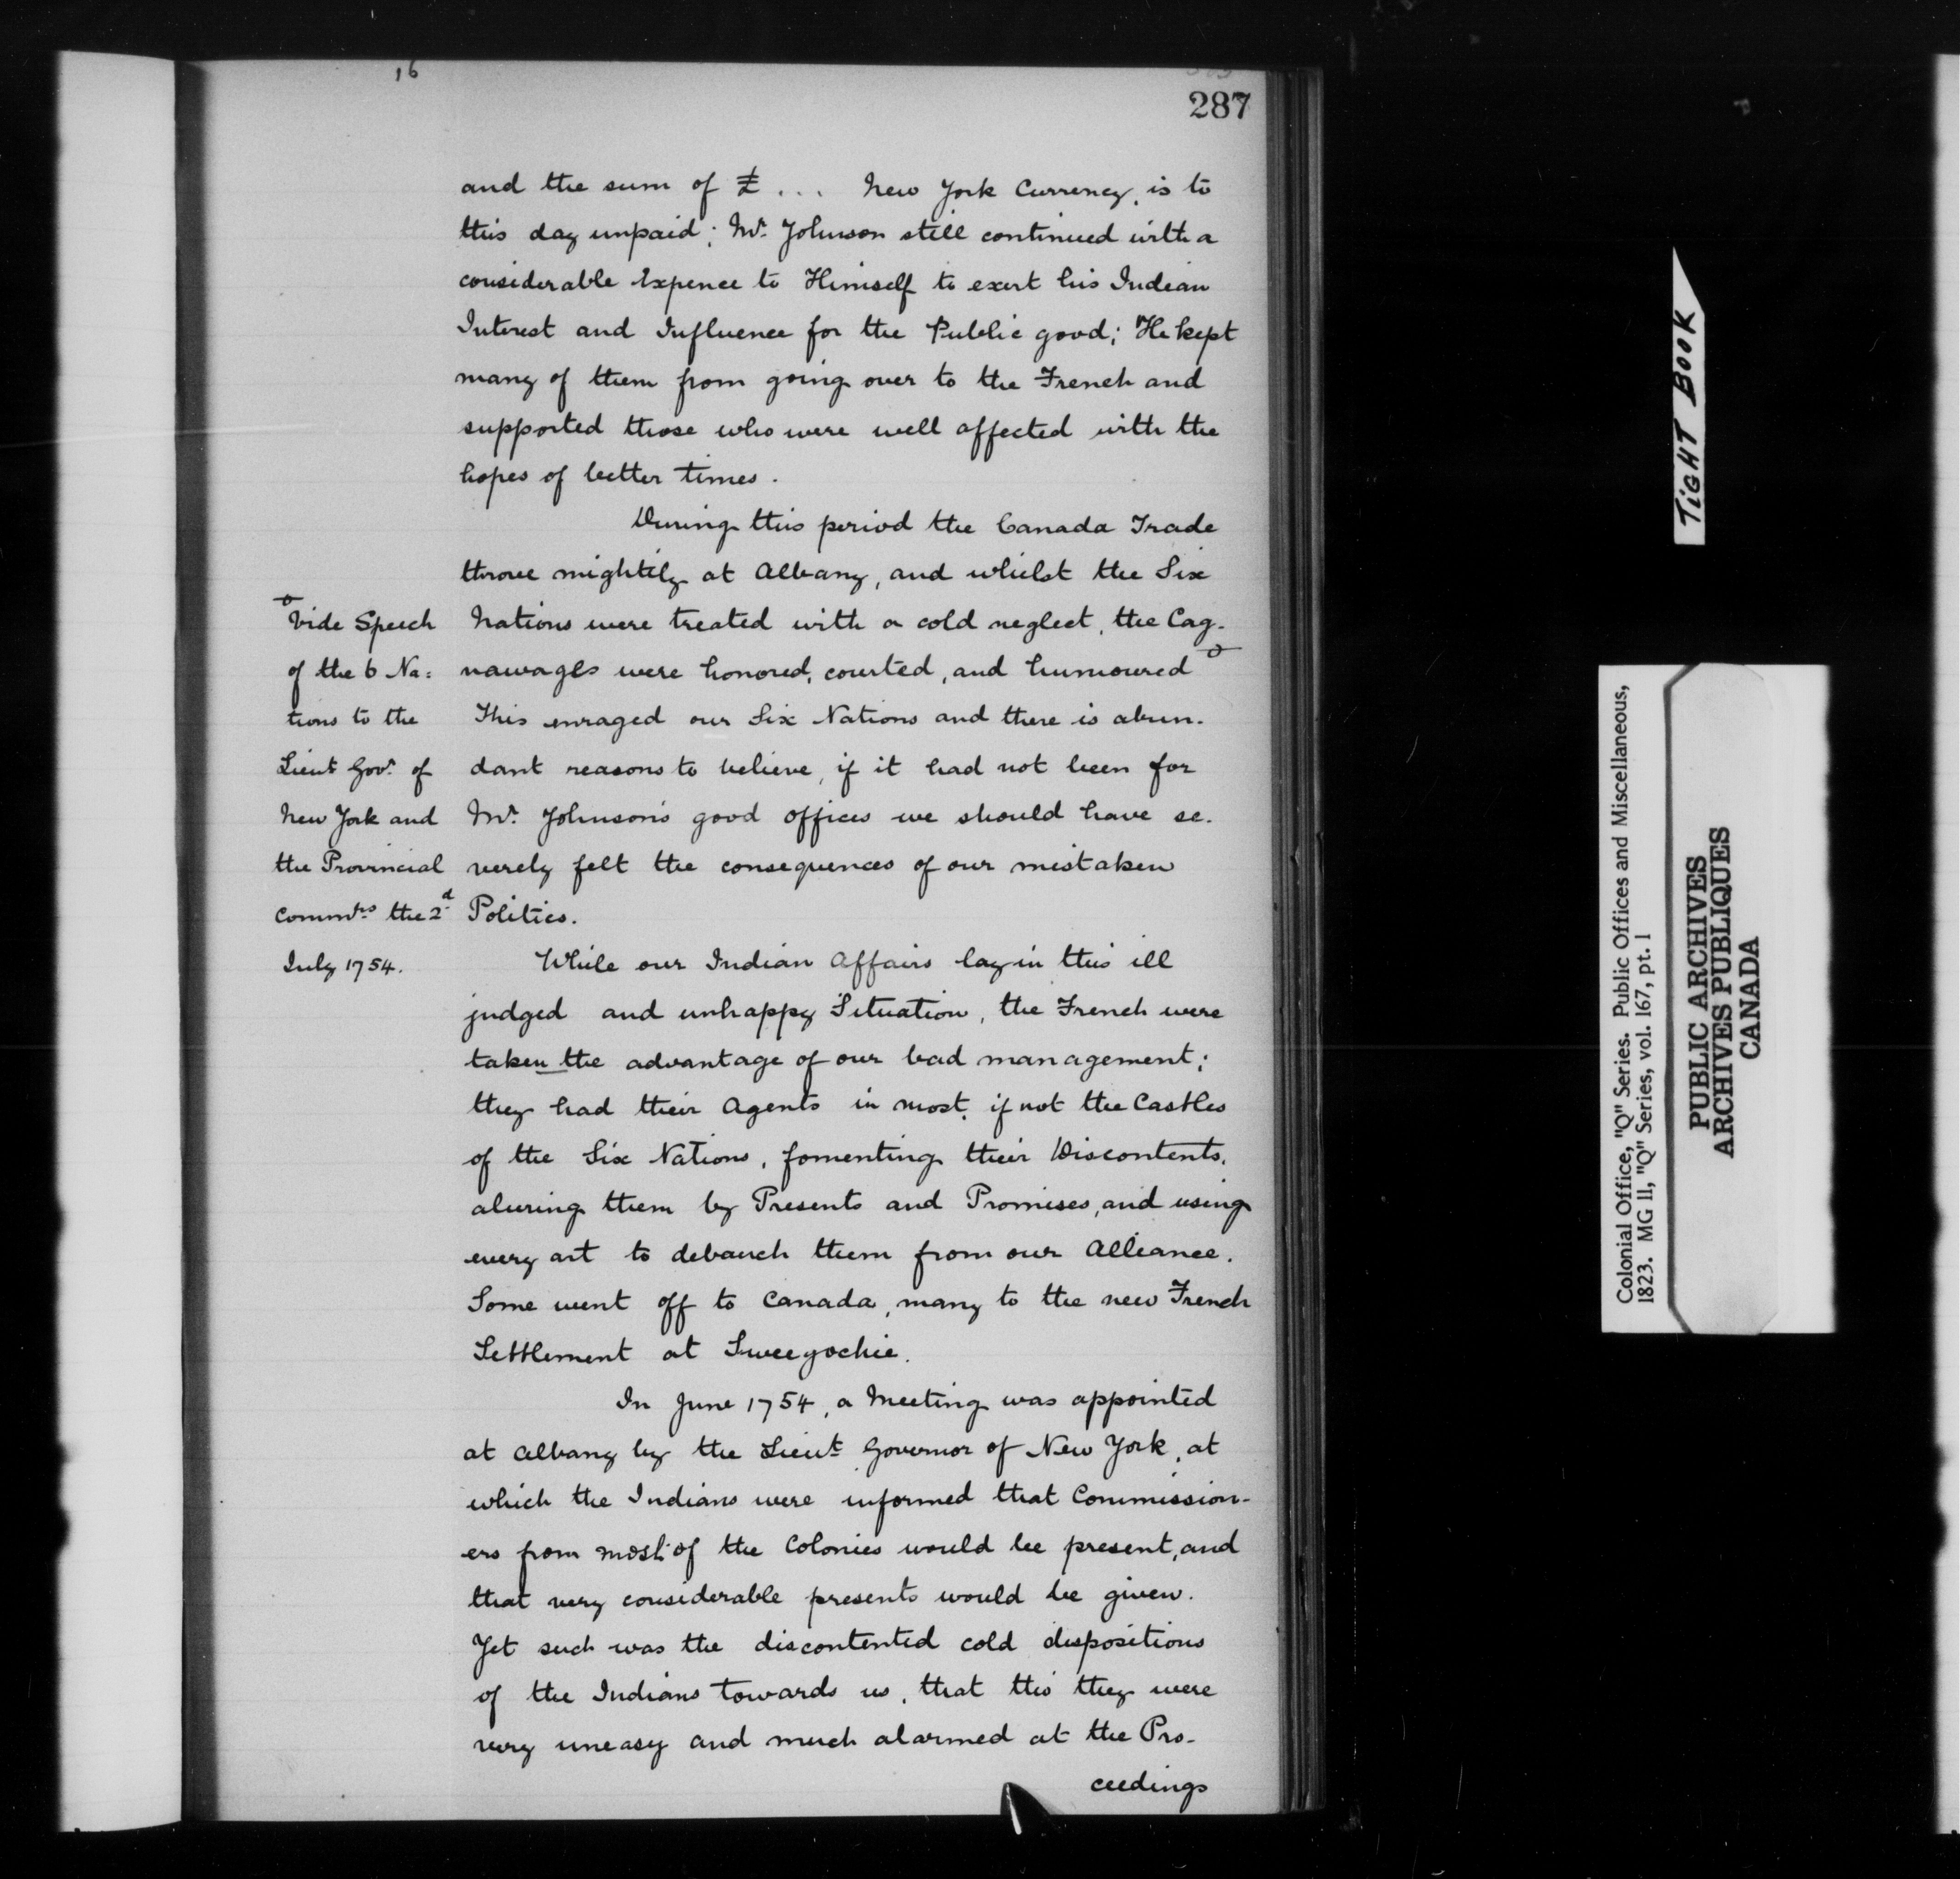 16
287
and the sum of £ ... New York Currency, is to
this day unpaid; Mr. Johnson still continued with a
considerable Expence to Himself to exert his Indian
Interest and Influence for the Public good; He kept
many of them from going over to the French and
supported those who were well affected with the
hopes of better times.
During this period the Canada Trade
throve mightily at Albany, and whilst the Six
Nations were treated with a cold neglect, the Cag-
nawages were honored, courted, and humoured
This enraged our Six Nations and there is abun-
dant reasons to believe, if it had not been for
Mr. Johnson's good offices we should have se-
verely felt the consequences of our mistaken
Politics.
Vide Speech
of the 6 Na:
tions to the
Lieut Govr. of
New York and
the Provincial
Commrs the 2d
July 1754.
While our Indian Affairs lay in this ill
judged and unhappy Situation, the French were
taken the advantage of our bad management;
they had their Agents in most, if not the Castles
of the Six Nations, fomenting their Discontents,
aluring them by Presents and Promises, and using
every art to debauch them from our Alliance.
Some went off to Canada, many to the new French
Settlement at Sweegochie.
In June 1754, a Meeting was appointed
at Albany by the Lieut Governor of New York, at
which the Indians were informed that Commission-
ers from most of the Colonies would be present, and
that very considerable presents would be given.
Yet such was the discontented cold dispositions
of the Indians towards us, that tho' they were
very uneasy and much alarmed at the Pro-
ceedings
TIGHT BOOK
Colonial Office, "Q" Series. Public Offices and Miscellaneous,
1823. MG 11, "Q" Series, vol. 167, pt. 1
PUBLIC ARCHIVES
ARCHIVES PUBLIQUES
CANADA